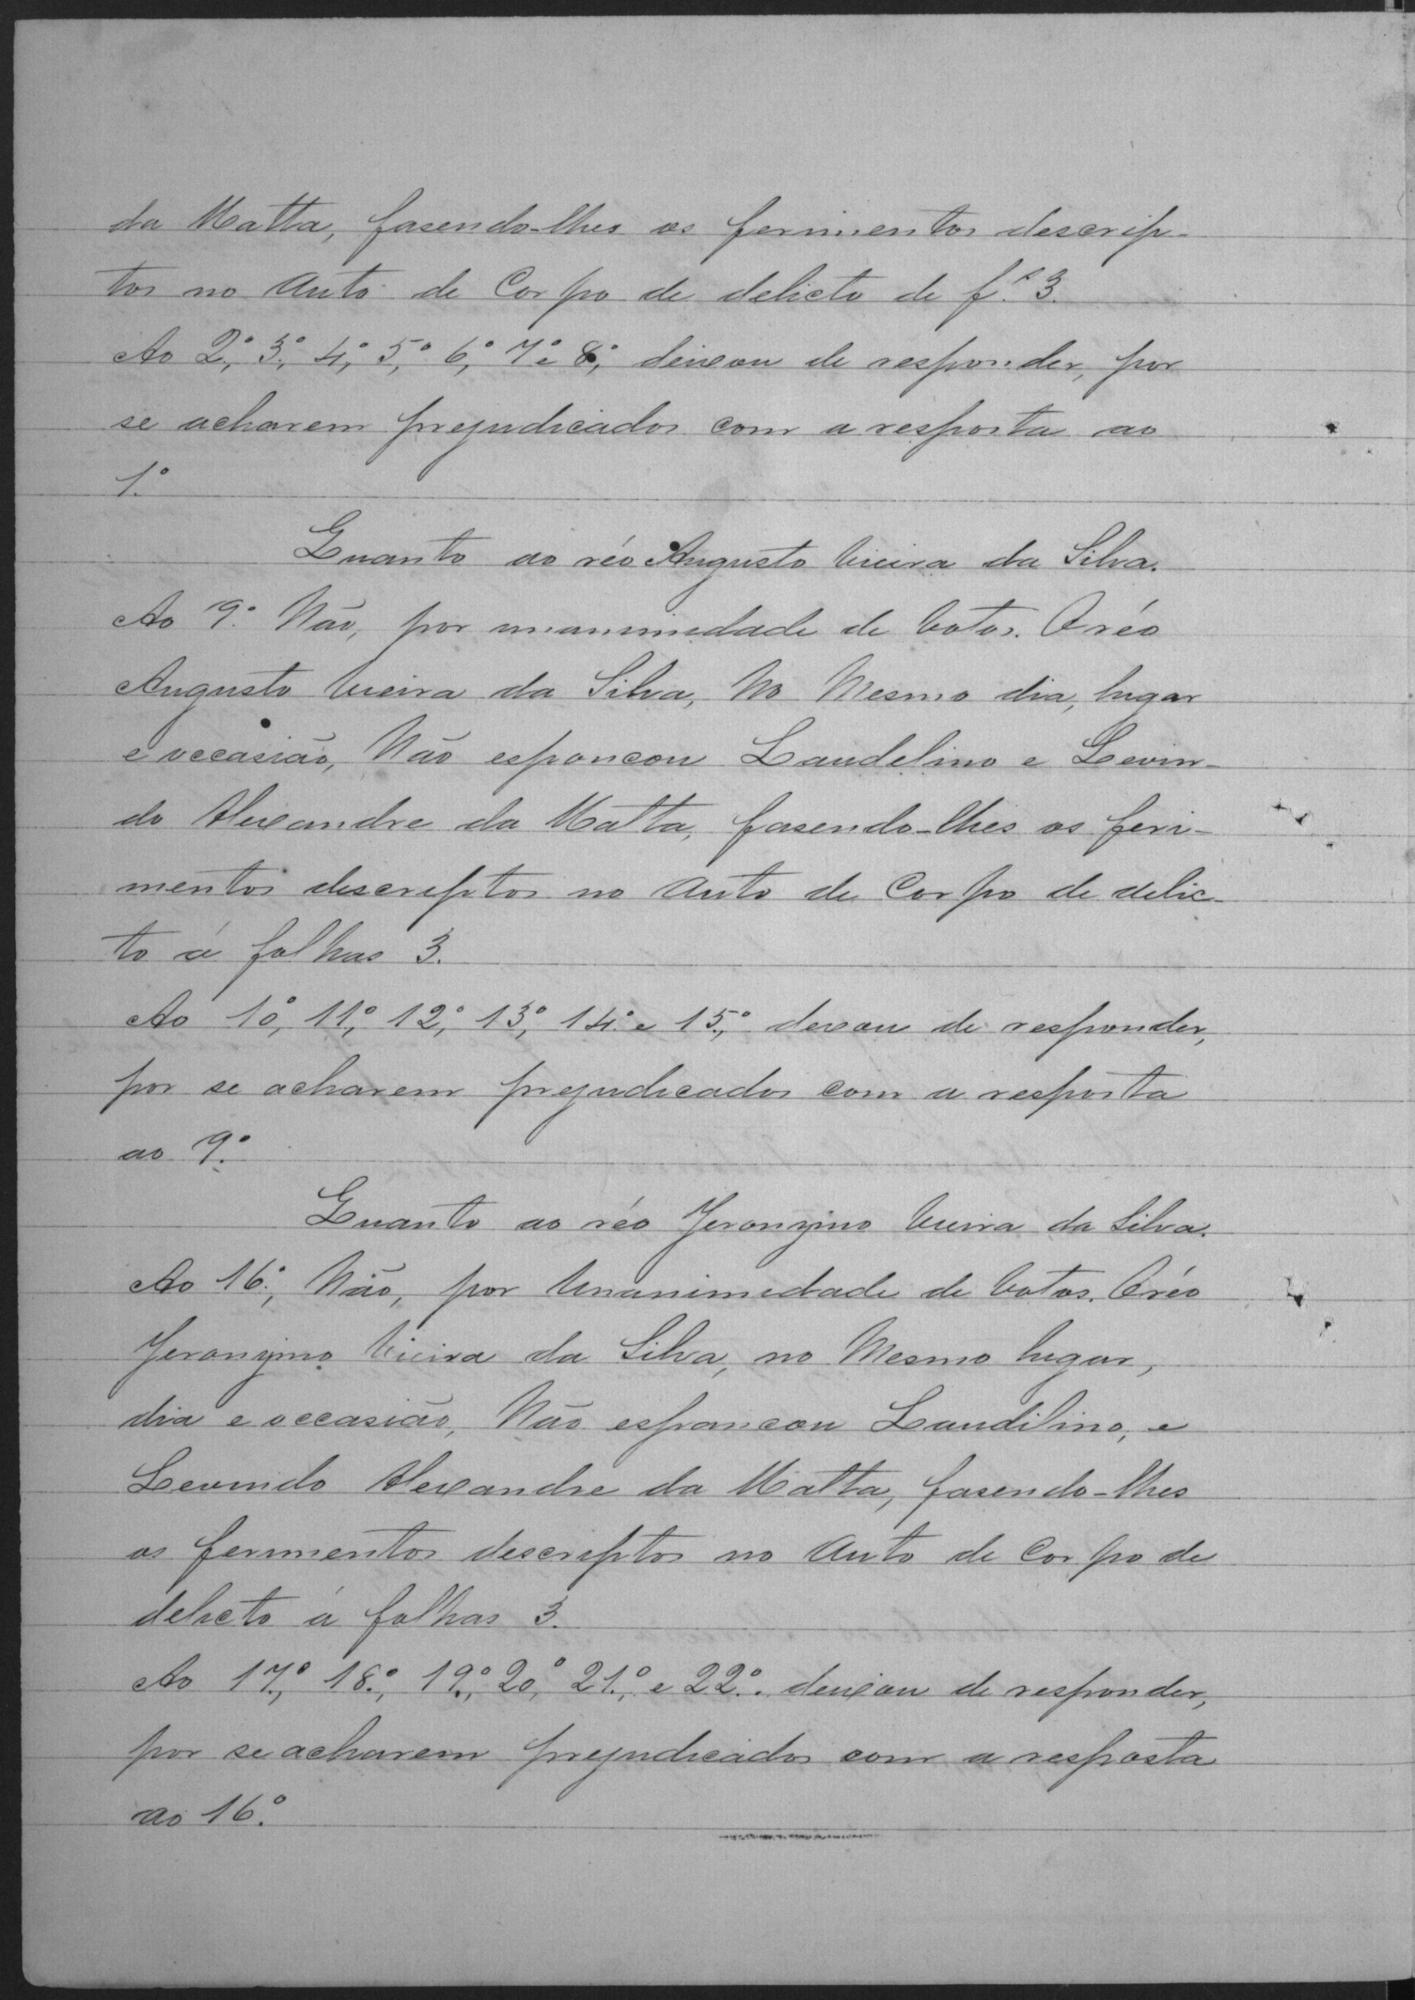 da Matta, fasendo-lhes os ferimentos descrip-
tos no Auto de Corpo de delicto de f.ˢ 3.
Ao 2º, 3º, 4º, 5º, 6º, 7º e 8º, deixou de responder, por
se acharem prejudicados com a resposta ao
1.º
Quanto ao réo Augusto Vieira da Silva.
Ao 9.º Não, por unanimedade de votos. O réo
Augusto Vieira da Silva, no mesmo dia, lugar
e occasião, não espancou Laudelino e Levin-
do Alexandre da Matta, fasendo-lhes os feri-
mentos descriptos no Auto de Corpo de delic-
to á folhas 3.
Ao 10º, 11º, 12º, 13º, 14º e 15º, dexou de responder,
por se acharem prejudicados com a resposta
ao 9.º
Quanto ao réo Jeronymo Vieira da Silva.
Ao 16º, Não, por unanimedade de votos. O réo
Jeronymo Vieira da Silva, no mesmo lugar,
dia e occasião, não espancou Laudilino, e
Levindo Alexandre da Matta, fasendo-lhes
os ferimentos descriptos no Auto de Corpo de
delicto á folhas 3.
Ao 17º, 18º, 19º, 20º, 21º, e 22º. deixou de responder,
por se acharem prejudicados com a resposta
ao 16º.